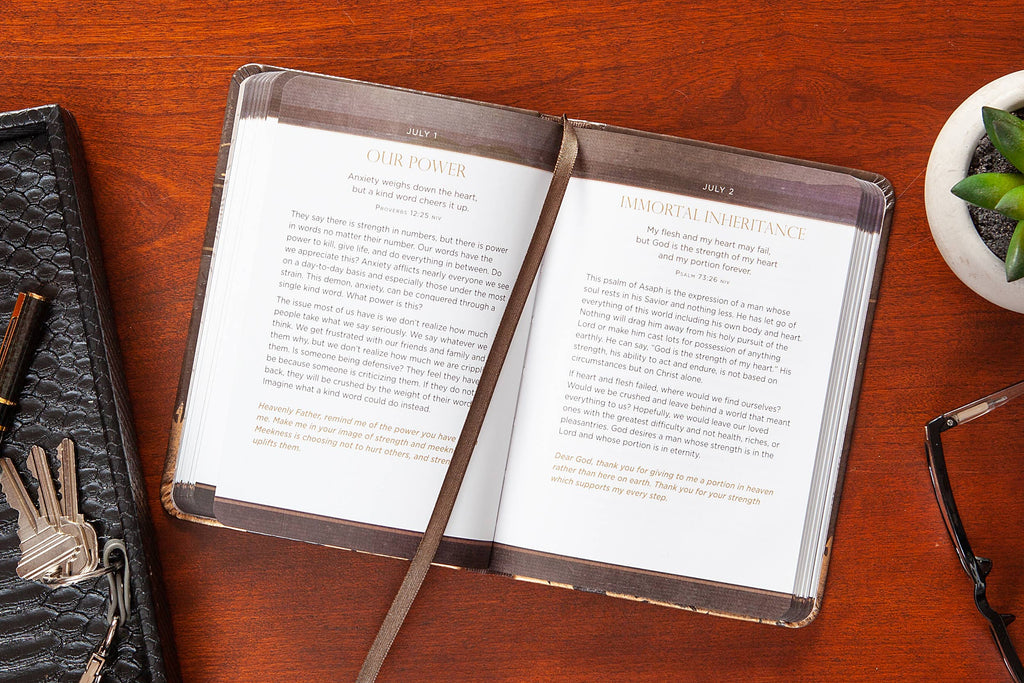 JULY 1
OUR POWER
Anxiety weighs down the heart,
but a kind word cheers it up.
PROVERBS 12:25 NIV
They say there is strength in numbers, but there is power
in words no matter their number. Our words have the
power to kill, give life, and do everything in between. Do
we appreciate this? Anxiety afflicts nearly everyone we see
on a day-to-day basis and especially those under the most
strain. This demon, anxiety, can be conquered through a
single kind word. What power is this?
The issue most of us have is we don't realize how much
people take what we say seriously. We say whatever we
think. We get frustrated with our friends and family and
them why, but we don't realize how much we are
them. Is someone being defensive? They feel they have
be because someone is criticizing them. If they do not
back, they will be crushed by the weight of their
Imagine what a kind word could do instead.
Heavenly Father, remind me of the power you have
me. Make me in your image of strength and
Meekness is choosing not to hurt others, and
uplifts them.
JULY 2
IMMORTAL INHERITANCE
My flesh and my heart may fail,
but God is the strength of my heart
and my portion forever.
PSALM 73:26 NIV
This psalm of Asaph is the expression of a man whose
soul rests in his Savior and nothing less. He has let go of
everything of this world including his own body and heart.
Nothing will drag him away from his holy pursuit of the
Lord or make him cast lots for possession of anything
earthly. He can say, "God is the strength of my heart." His
strength, his ability to act and endure, is not based on
circumstances but on Christ alone.
If heart and flesh failed, where would we find ourselves?
Would we be crushed and leave behind a world that meant
everything to us? Hopefully, we would leave our loved
ones with the greatest difficulty and not health, riches, or
pleasantries. God desires a man whose strength is in the
Lord and whose portion is in eternity.
Dear God, thank you for giving to me a portion in heaven
rather than here on earth. Thank you for your strength
which supports my every step.